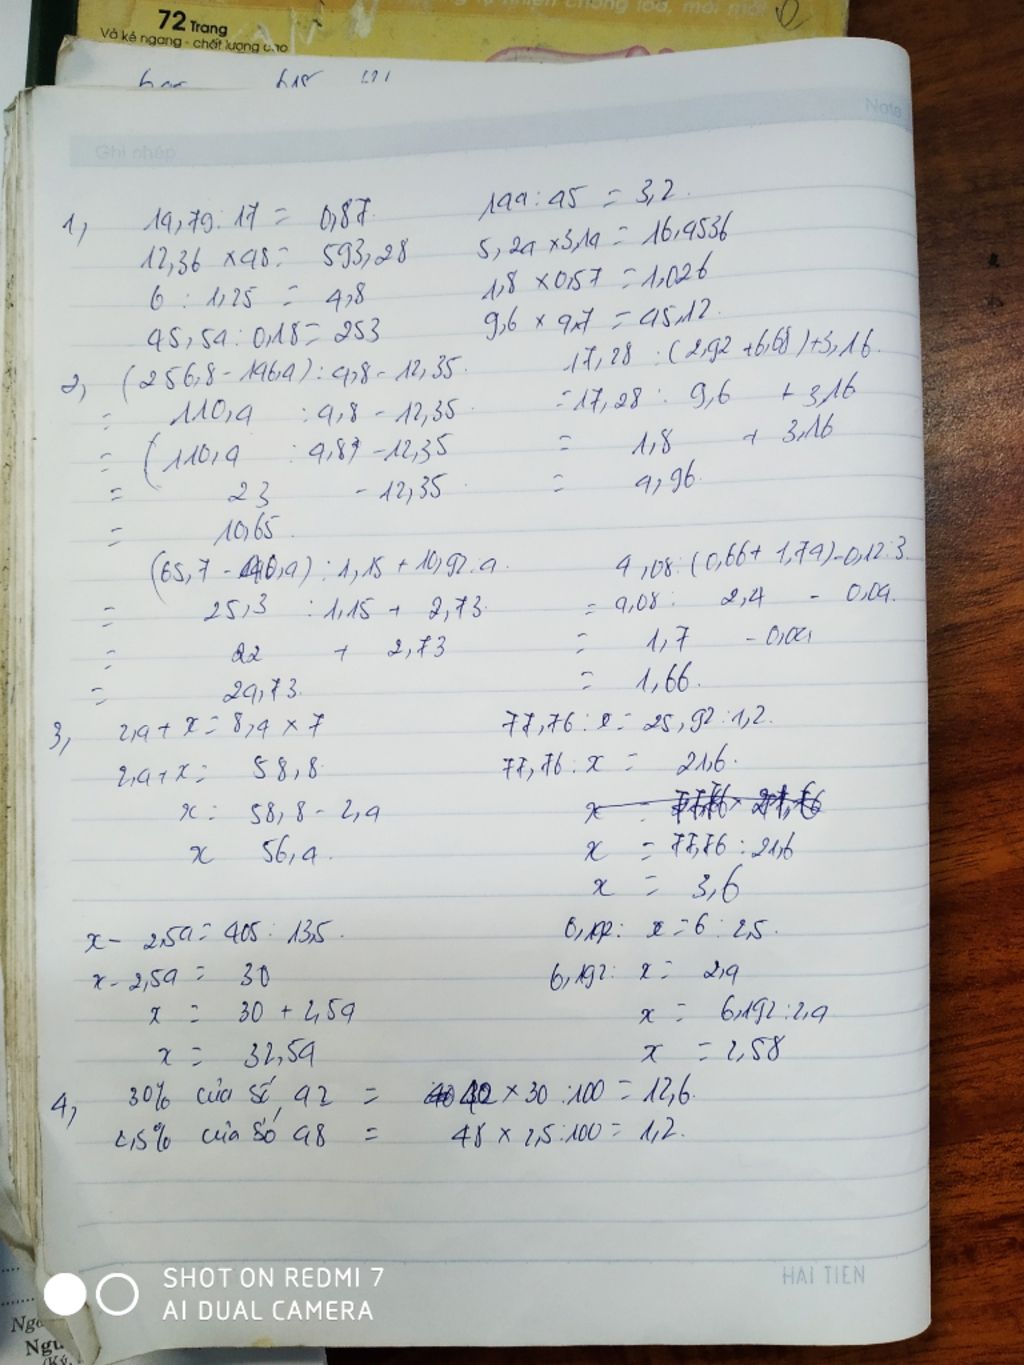 72 Trang
Vở kẻ ngang - chất lượng cao
Ghi chép
Note
1, 14,79 : 17 = 0,87
144 : 45 = 3,2
12,36 × 48 = 593,28
5,24 × 3,14 = 16,4536
6 : 1,25 = 4,8
1,8 × 0,57 = 1,026
45,54 : 0,18 = 253
9,6 × 4,7 = 45,12
2, (256,8 - 146,4) : 4,8 - 12,35
= 110,4 : 4,8 - 12,35
= (110,4 : 4,8) - 12,35
= 23 - 12,35
= 10,65
17,28 : (2,92 + 6,68) + 3,16
= 17,28 : 9,6 + 3,16
= 1,8 + 3,16
= 4,96
(65,7 - 40,4) : 1,15 + 10,92 : 4
= 25,3 : 1,15 + 2,73
= 22 + 2,73
= 24,73
4,08 : (0,66 + 1,74) - 0,12 : 3
= 4,08 : 2,4 - 0,04
= 1,7 - 0,04
= 1,66
3, 2,4 + x = 8,4 × 7
2,4 + x = 58,8
x = 58,8 - 2,4
x 56,4
77,76 : x = 25,92 : 1,2
77,76 : x = 21,6
x = 77,76 : 21,6
x = 3,6
x - 2,54 = 405 : 13,5
x - 2,54 = 30
x = 30 + 2,54
x = 32,54
6,192 : x = 6 : 2,5
6,192 : x = 2,4
x = 6,192 : 2,4
x = 2,58
4, 30% của số 42 = 42 × 30 : 100 = 12,6
2,5% của số 48 = 48 × 2,5 : 100 = 1,2
HAI TIEN
SHOT ON REDMI 7
AI DUAL CAMERA